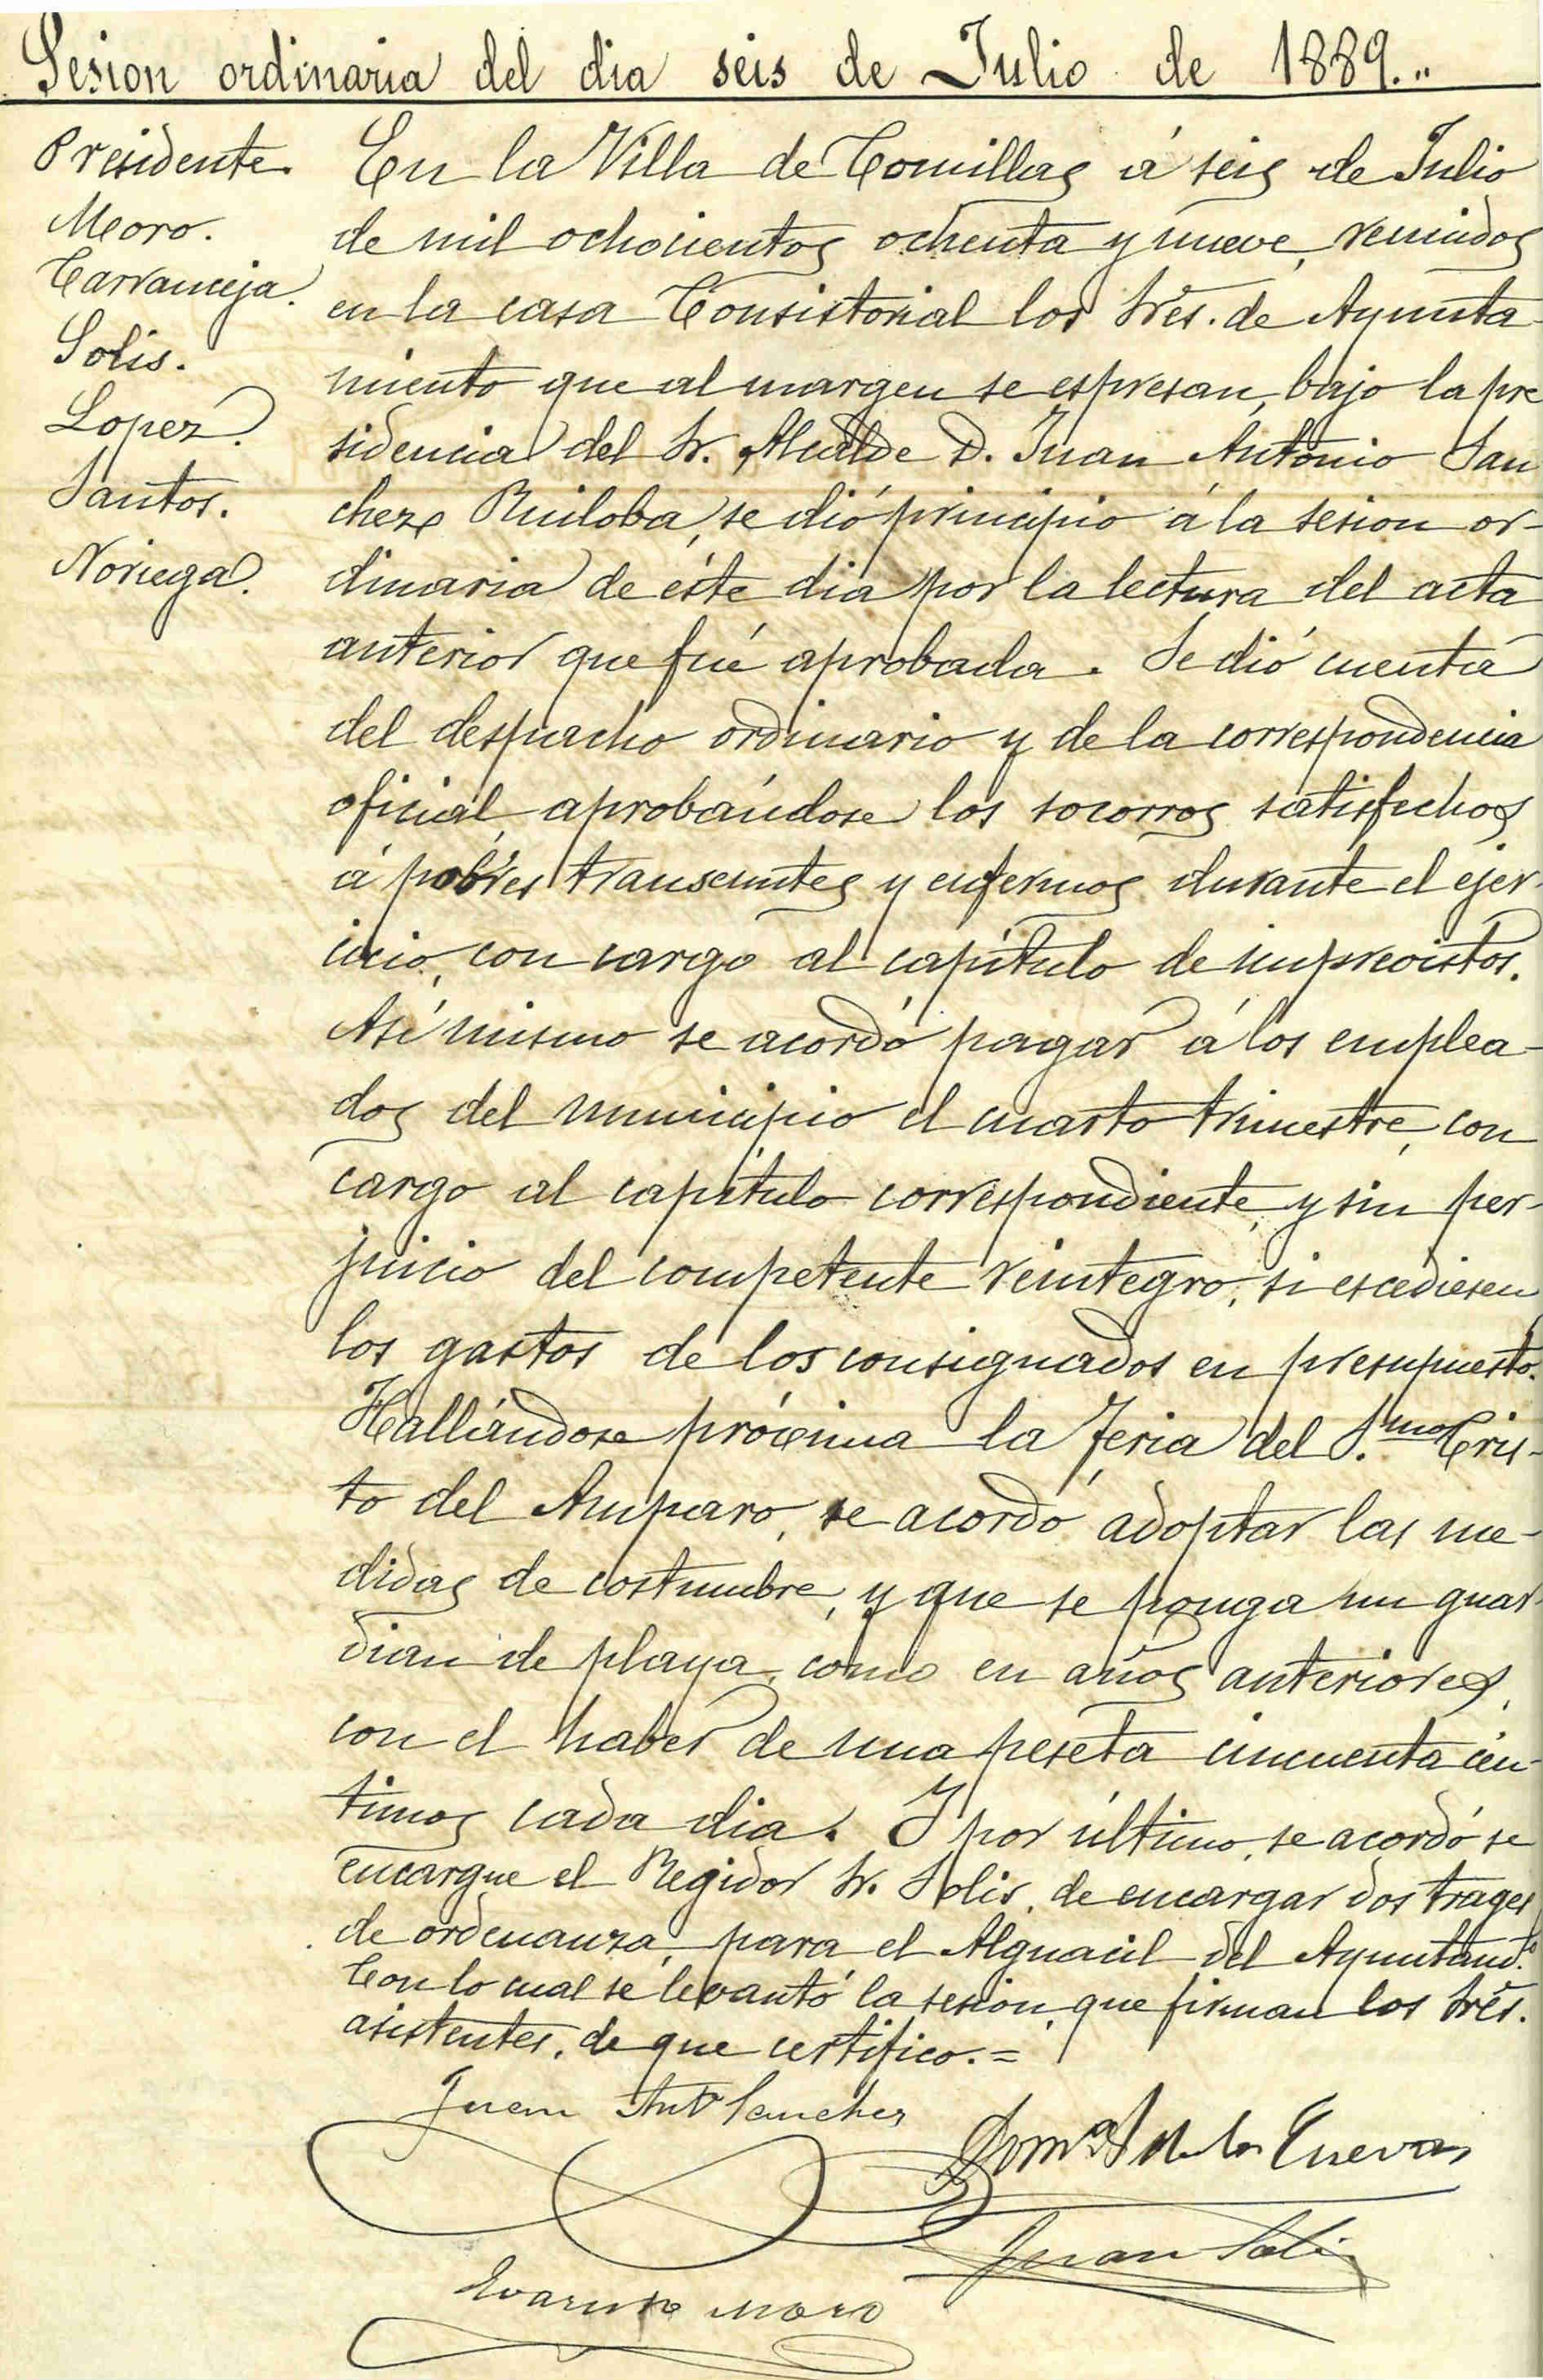 Sesion ordinaria del dia seis de Julio de 1889.."
Presidente.
Moro.
Carranceja.
Solis.
Lopez.
Santos.
Noriega.
En la Villa de Comillas á seis de Julio
de mil ochocientos ochenta y nueve, reunidos
en la casa Consistorial los Sres. de Ayunta
miento que al margen se espresan, bajo la pre
sidencia del Sr. Alcalde D. Juan Antonio San
chez Ruiloba, se dió principio á la sesion or-
dinaria de éste dia por la lectura del acta
anterior que fué aprobada. Se dió cuenta
del despacho ordinario y de la correspondencia
oficial, aprobándose los socorros satisfechos
á pobres transeuntes y enfermos durante el ejer-
cicio, con cargo al capítulo de imprevistos.
Así mismo se acordó pagar á los emplea-
dos del municipio el cuarto trimestre, con
cargo al capítulo correspondiente, y sin per-
juicio del competente reintegro, si escediesen
los gastos de los consignados en presupuesto.
Hallándose prócsima la Feria del S.mo Cris-
to del Amparo, se acordó adoptar las me-
didas de costumbre, y que se ponga un guar-
dian de playa, como en años anteriores,
con el haber de una peseta cincuenta cén-
timos cada dia. Y por último, se acordó se
encargue el Regidor Sr. Solis, de encargar dos trages
de ordenanza, para el Alguacil del Ayuntamto.
Con lo cual se levantó la sesion, que firman los Sres.
asistentes, de que certifico.=
Juan Anto Sanchez
de las Cuevas
Juan Solis
Evaristo Moro